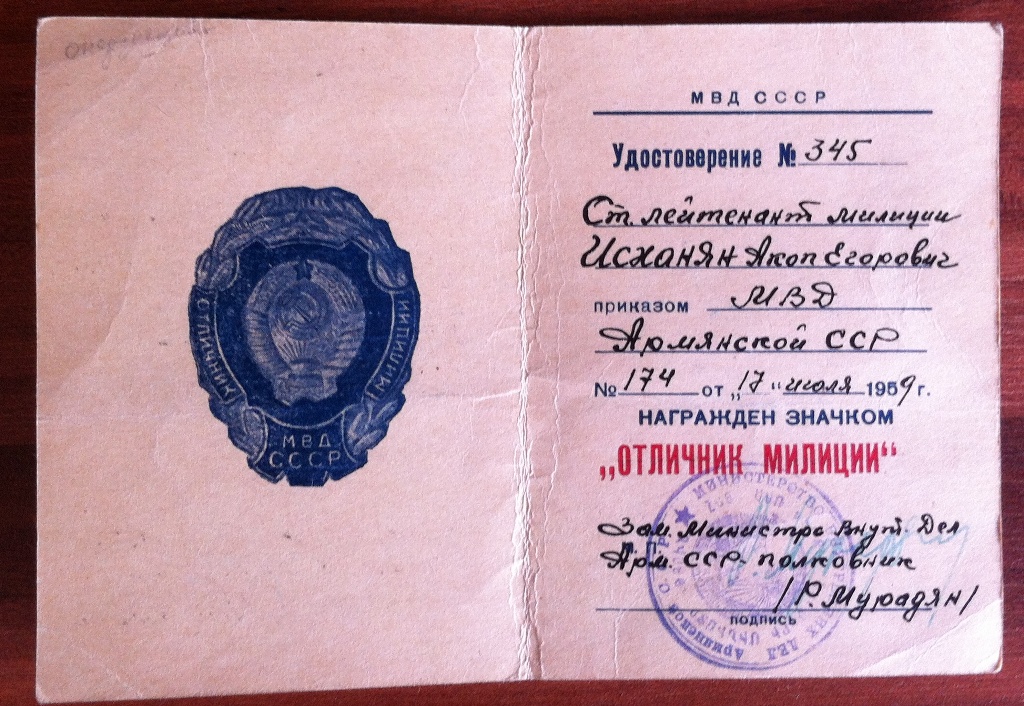 ОТЛИЧНИК
МИЛИЦИИ
МВД
СССР
МВД СССР
Удостоверение № 345
Ст. лейтенант милиции
Исханян Акоп Егорович
приказом МВД
Армянской ССР
№ 174 от „17" июля 1959 г.
НАГРАЖДЕН ЗНАЧКОМ
„ОТЛИЧНИК МИЛИЦИИ“
Зам. Министра Внут. Дел
Арм. ССР полковник
/Р. Мурадян/
подпись
МИНИСТЕРСТВО ДЕЛ Армянской